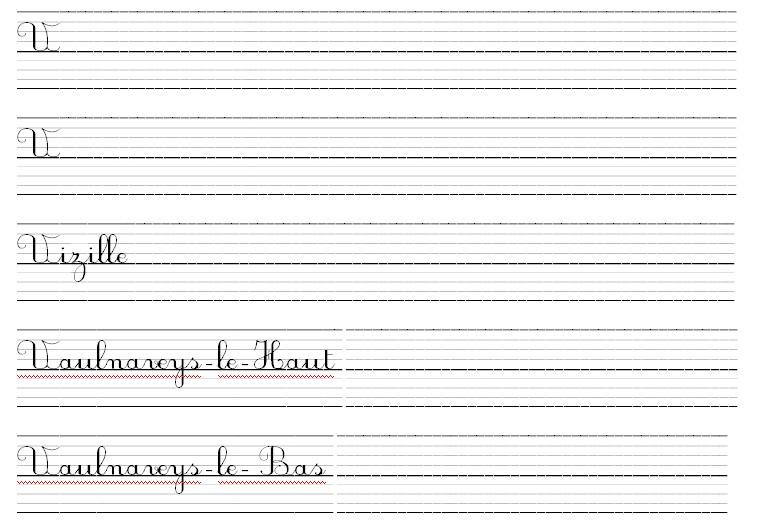 V
V
Vizille
Vaulnaveys-le-Haut
Vaulnaveys-le- Bas